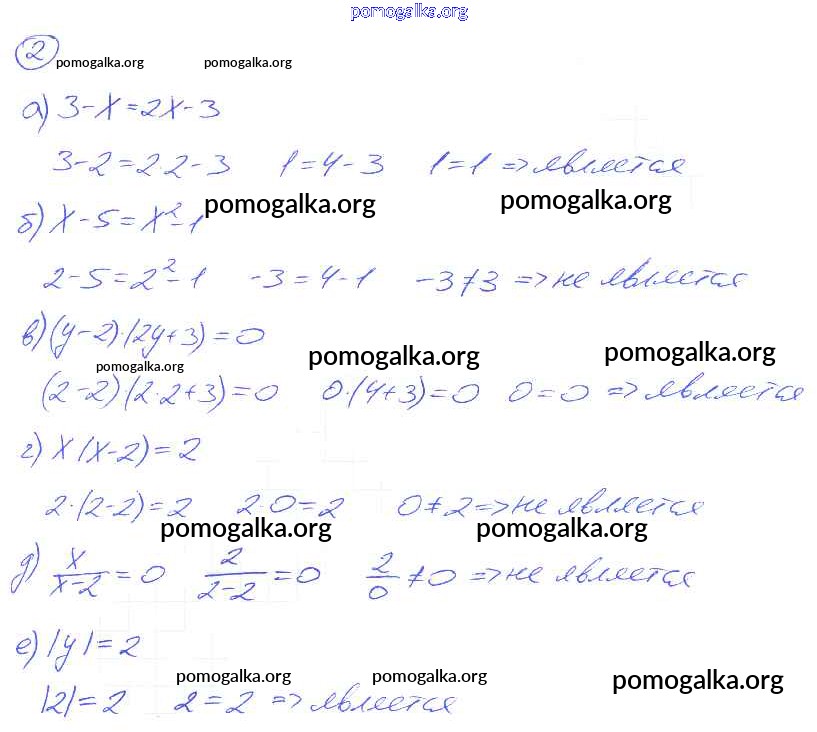 pomogalka.org
2
pomogalka.org pomogalka.org
а) 3-x=2x-3
3-2=2 2-3 1=4-3 1=1 => является
pomogalka.org pomogalka.org
б) x-5=x²-1
2-5=2²-1 -3=4-1 -3≠3 => не является
в) (y-2)·(2y+3)=0
pomogalka.org pomogalka.org pomogalka.org
(2-2)(2·2+3)=0 0·(4+3)=0 0=0 => является
г) x(x-2)=2
2·(2-2)=2 2·0=2 0≠2 => не является
pomogalka.org pomogalka.org
д) x/(x-2)=0 2/(2-2)=0 2/0≠0 => не является
е) |y|=2
pomogalka.org pomogalka.org pomogalka.org
|2|=2 2=2 => является